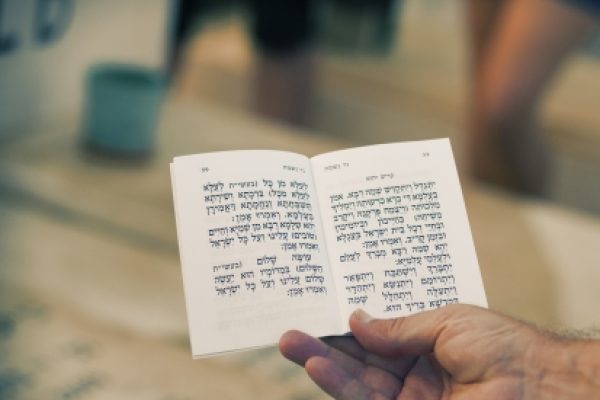 נר נשמה
קדיש יתום
יִתְגַּדַּל וְיִתְקַדַּשׁ שְׁמֵהּ רַבָּא. אמן
בְּעָלְמָא דִּי בְרָא כִרְעוּתֵהּ וְיַמְלִיךְ
מַלְכוּתֵהּ (וְיַצְמַח פֻּרְקָנֵהּ וִיקָרֵב
מְשִׁיחֵהּ) בְּחַיֵּיכוֹן וּבְיוֹמֵיכוֹן
וּבְחַיֵּי דְכָל בֵּית יִשְׂרָאֵל בַּעֲגָלָא
וּבִזְמַן קָרִיב, וְאִמְרוּ אָמֵן:
יְהֵא שְׁמֵהּ רַבָּא מְבָרַךְ לְעָלַם
וּלְעָלְמֵי עָלְמַיָּא:
יִתְבָּרַךְ וְיִשְׁתַּבַּח וְיִתְפָּאַר
וְיִתְרוֹמַם וְיִתְנַשֵּׂא וְיִתְהַדָּר
וְיִתְעַלֶּה וְיִתְהַלָּל שְׁמֵהּ
דְּקֻדְשָׁא בְּרִיךְ הוּא.
נר נשמה
לְעֵלָּא מִן כָּל (בעשי״ת לְעֵלָּא
לְעֵלָּא מִכָּל) בִּרְכָתָא וְשִׁירָתָא
תֻּשְׁבְּחָתָא וְנֶחֱמָתָא דַּאֲמִירָן
בְּעָלְמָא, וְאִמְרוּ אָמֵן:
יְהֵא שְׁלָמָא רַבָּא מִן שְׁמַיָּא וְחַיִּים
(טוֹבִים) עָלֵינוּ וְעַל כָּל יִשְׂרָאֵל
וְאִמְרוּ אָמֵן:
עוֹשֶׂה שָׁלוֹם (בעשי״ת
הַשָּׁלוֹם) בִּמְרוֹמָיו הוּא יַעֲשֶׂה
שָׁלוֹם עָלֵינוּ וְעַל כָּל יִשְׂרָאֵל
וְאִמְרוּ אָמֵן: